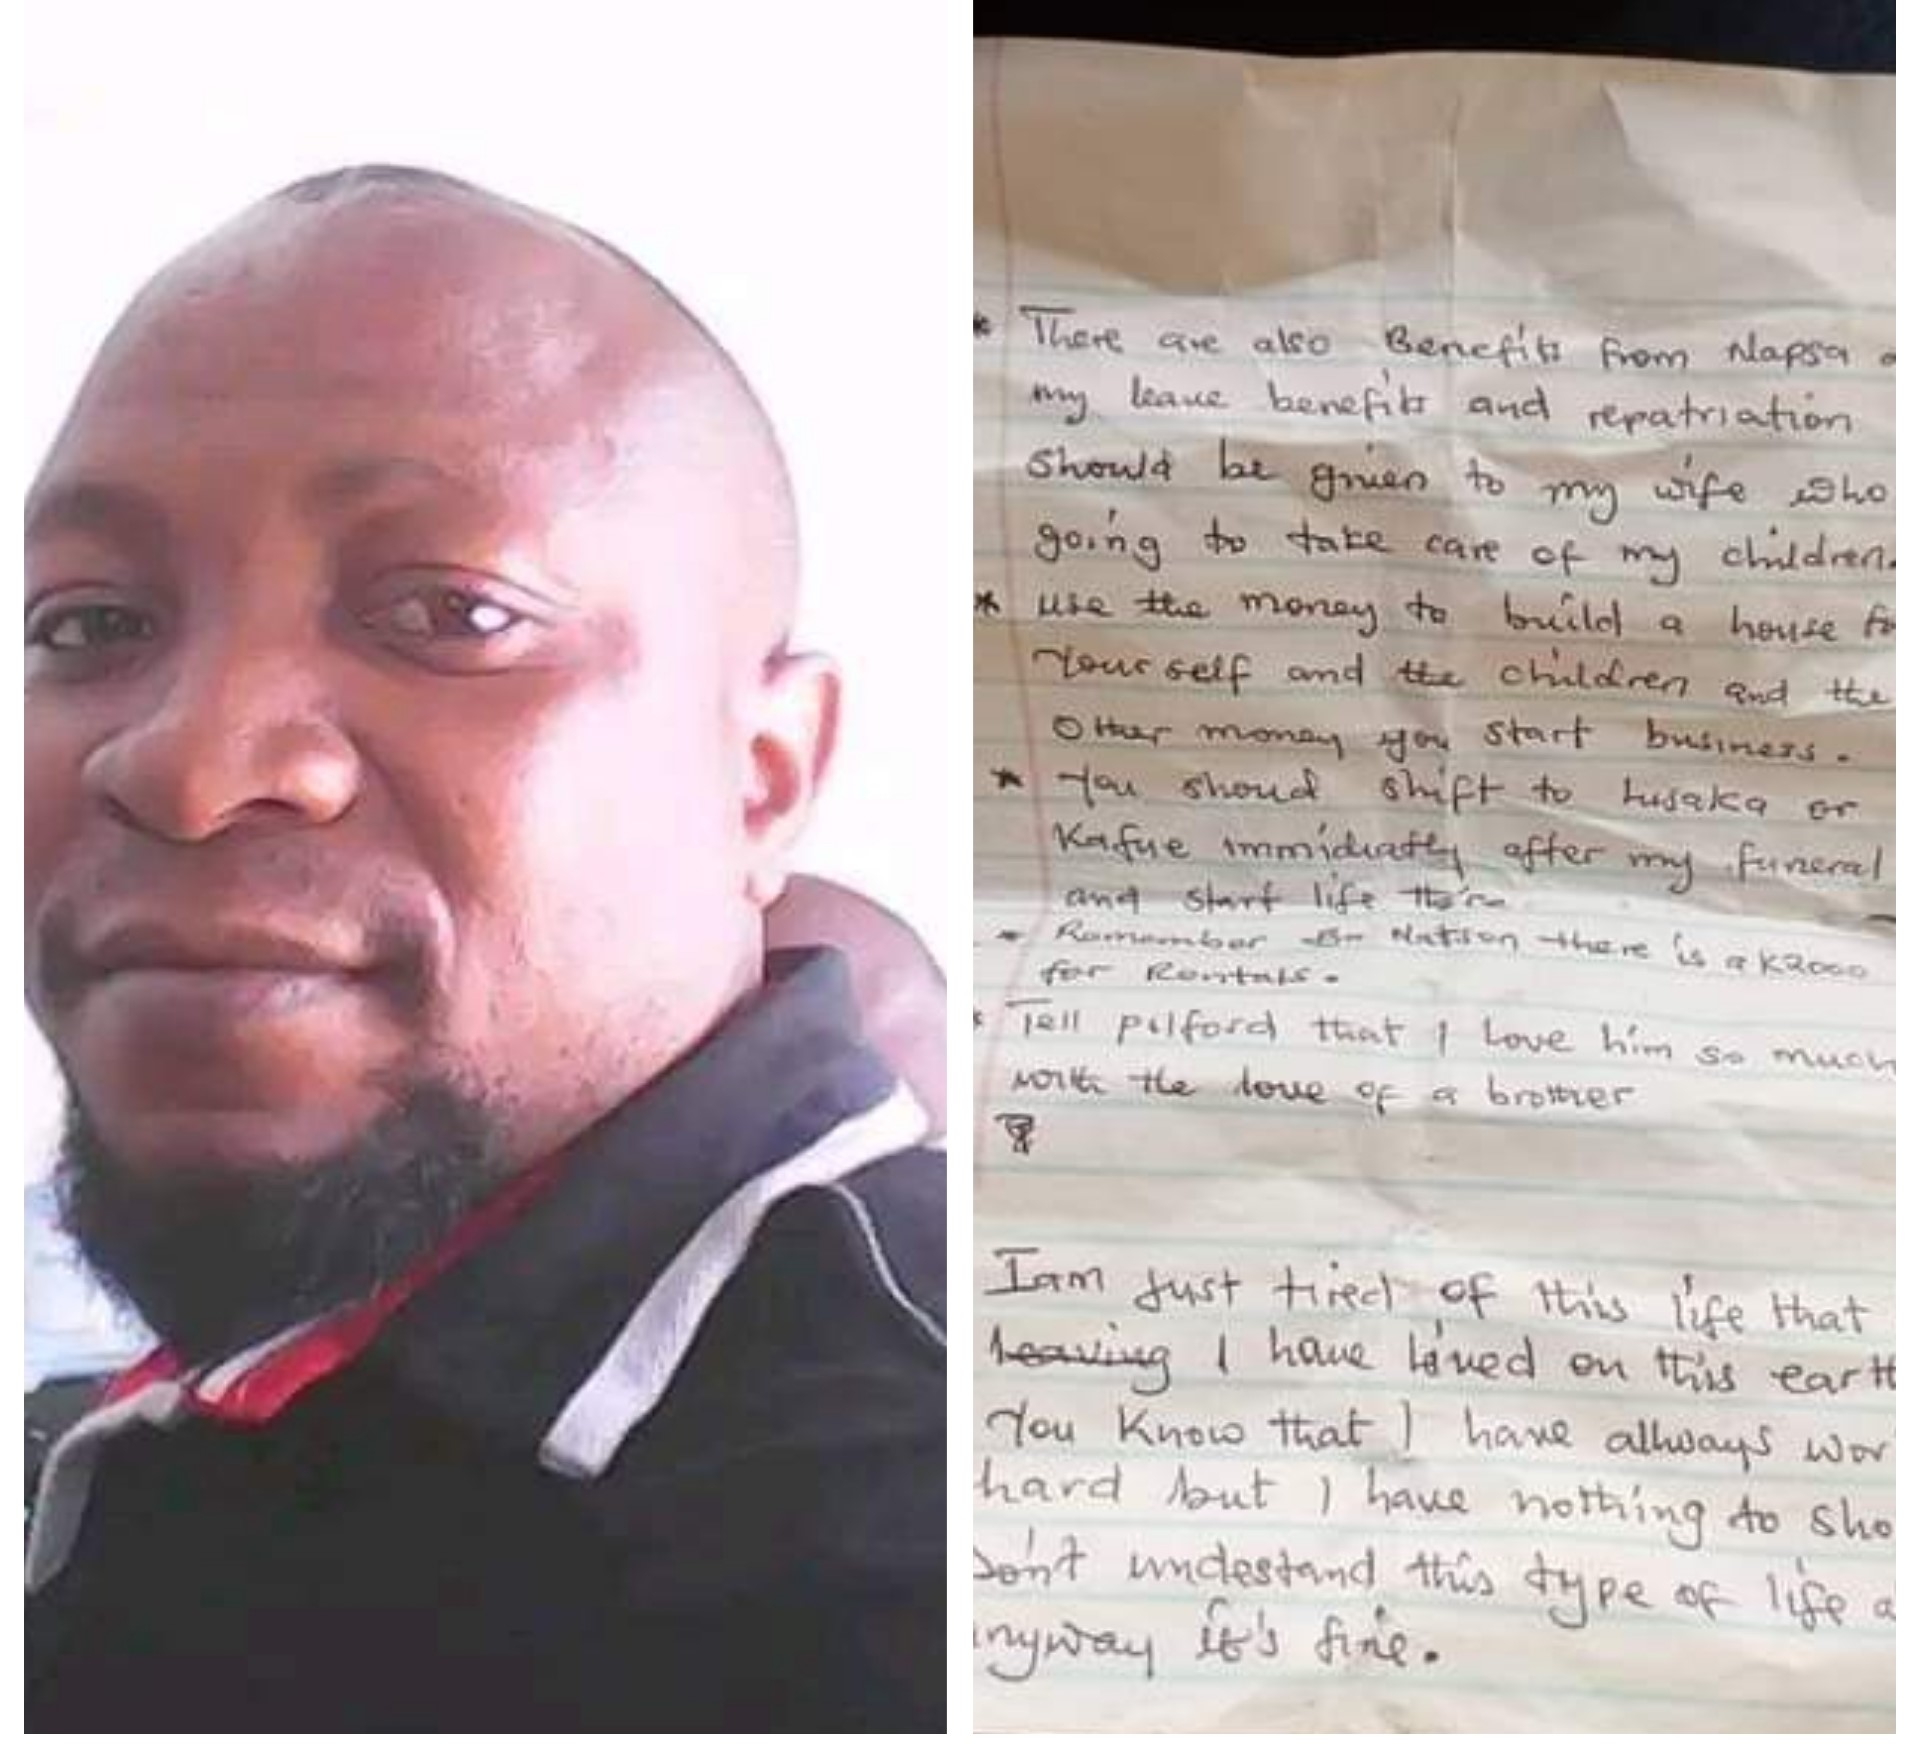 * There are also Benefits from Napsa
my leave benefits and repatriation
should be given to my wife who
going to take care of my children.
* use the money to build a house
Your self and the children and the
Other money you start business.
* You shoud shift to Lusaka or
Kafue immidiatly after my funeral
and start life
* Remember there is a K2000
for Rentals.
* Tell pilford that I Love him so much
with the love of a brother
I am just tired of this life that
leaving I have lived on this earth
You Know that I have allways
hard but I have nothing to
Don't undestand this type of life
anyway it's fine.